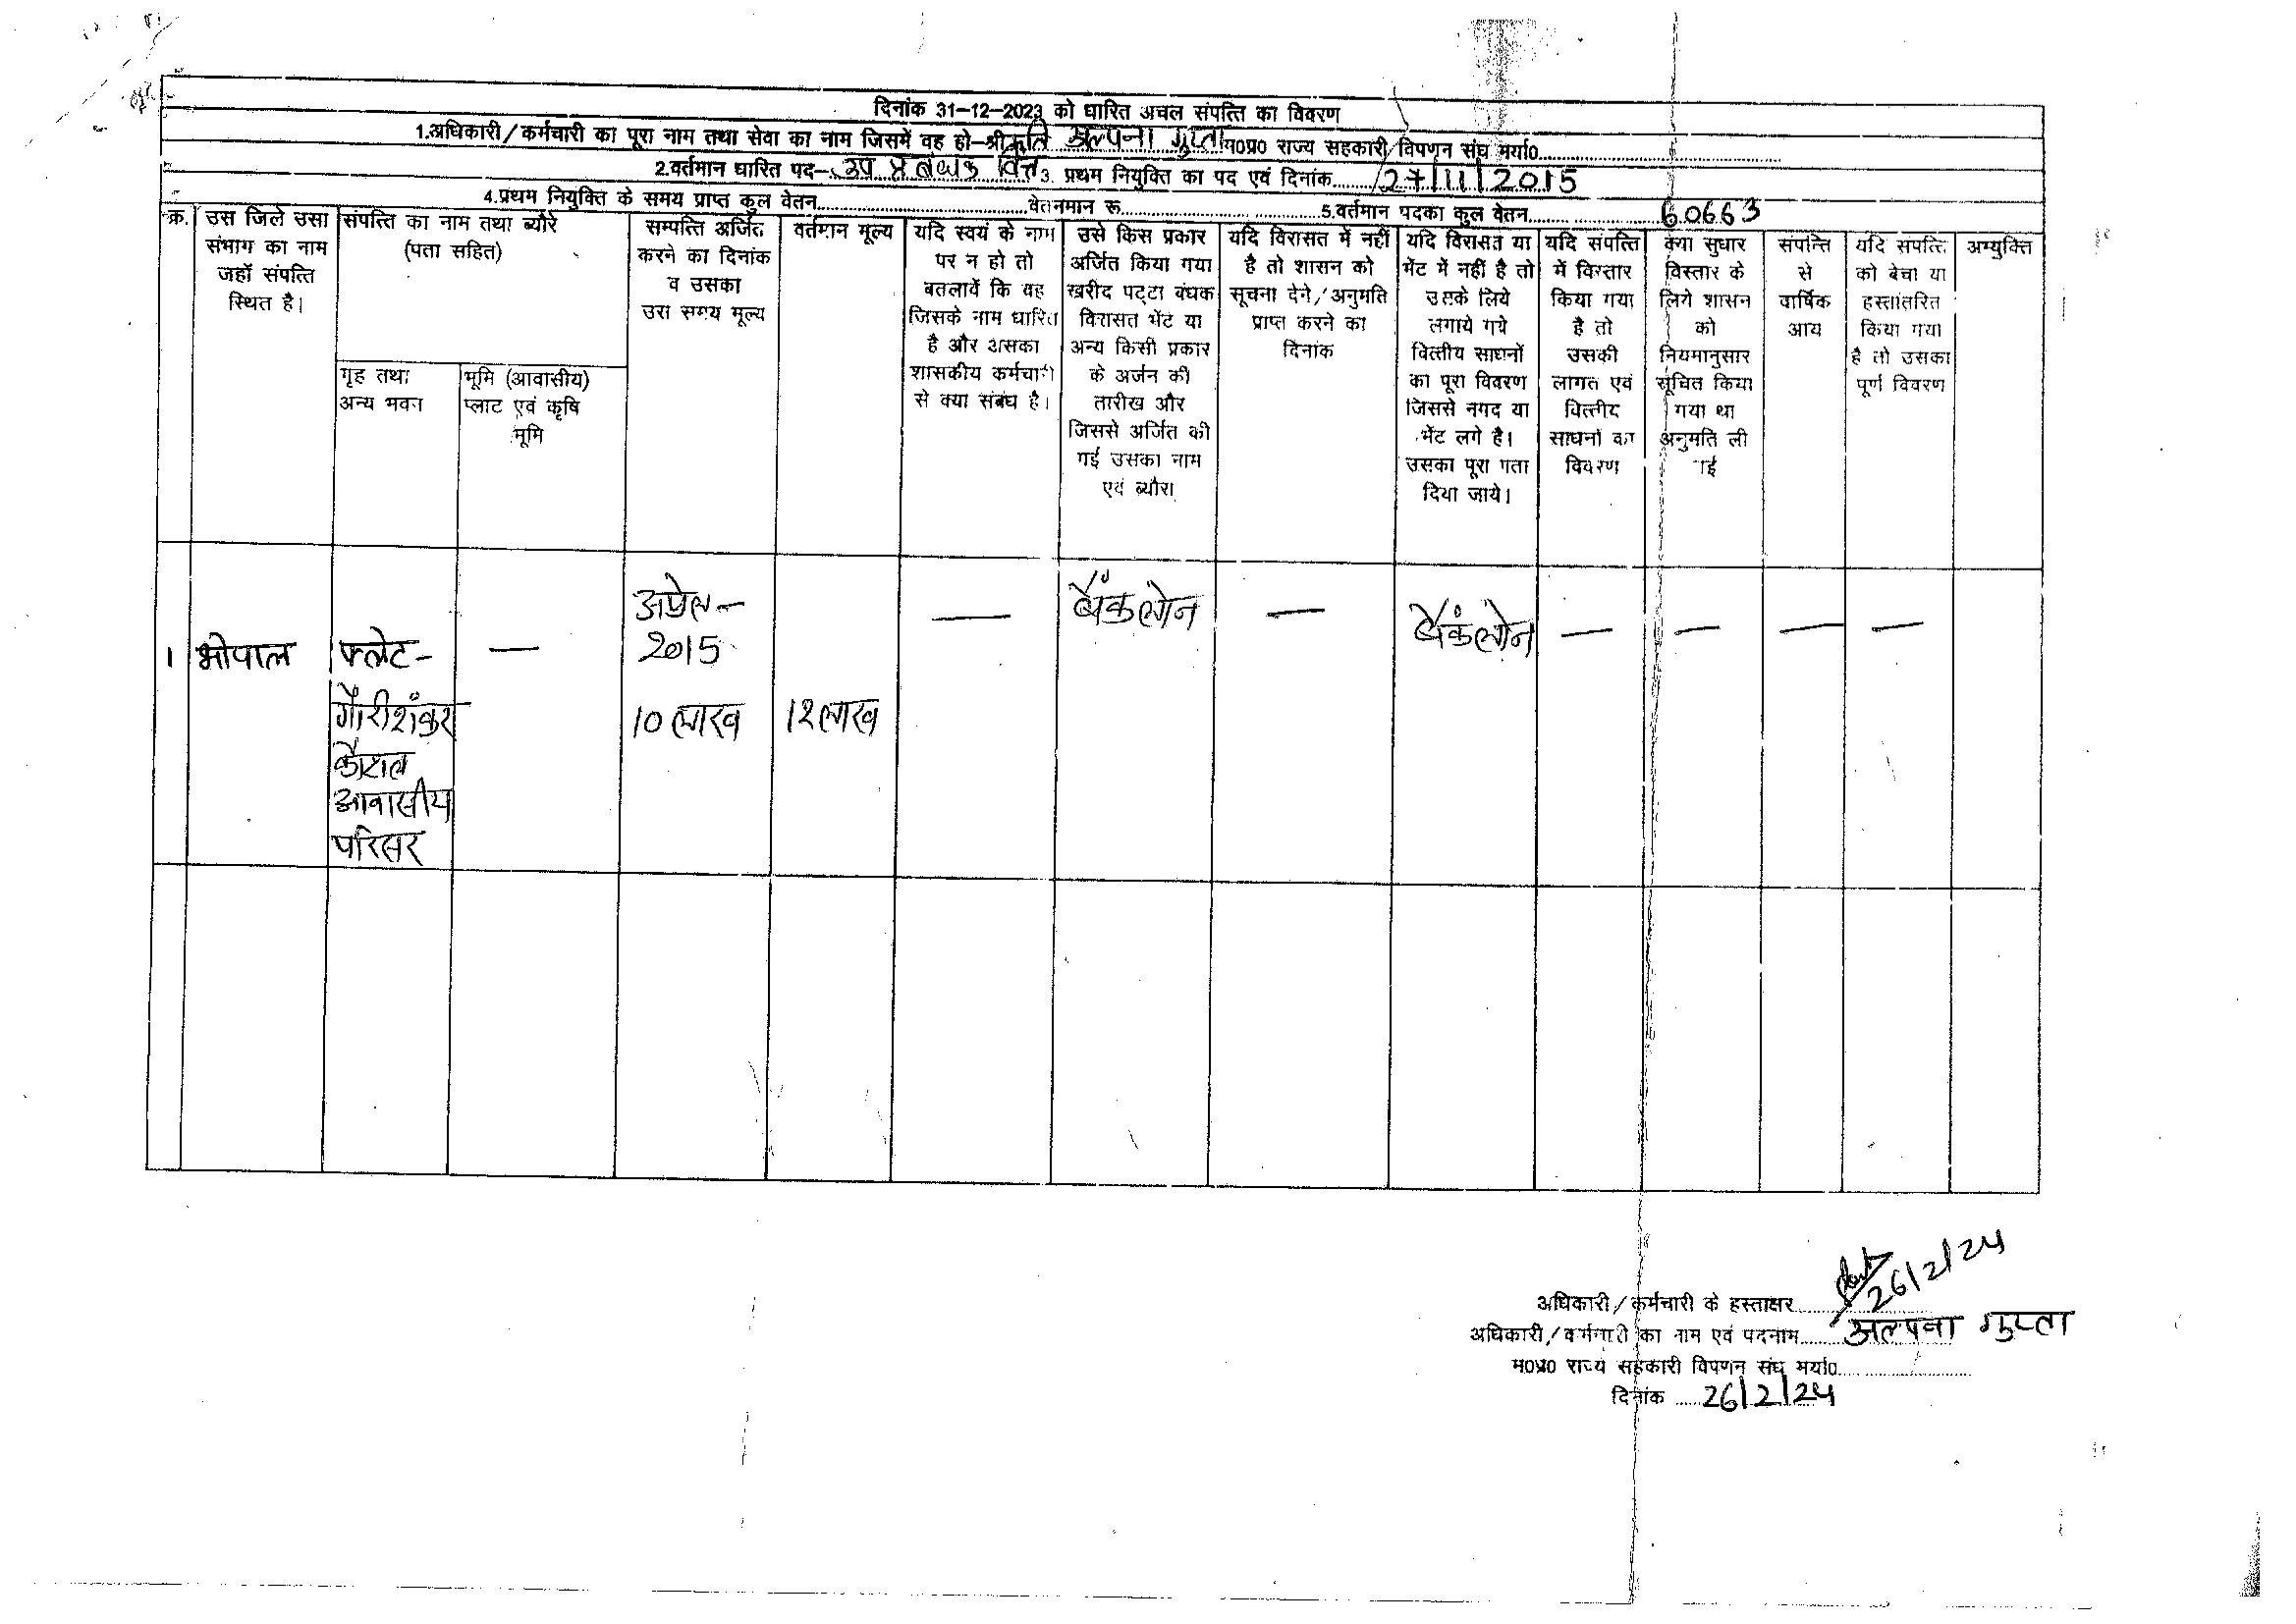 दिनांक 31-12-2023 को धारित अचल संपत्ति का विवरण
1.अधिकारी/कर्मचारी का पूरा नाम तथा सेवा का नाम जिसमें वह हो-श्रीमति अल्पना गुप्ता म0प्र0 राज्य सहकारी विपणन संघ मर्या0
2.वर्तमान धारित पद- उप प्रबंधक वित्त 3. प्रथम नियुक्ति का पद एवं दिनांक 27/11/2015
4.प्रथम नियुक्ति के समय प्राप्त कुल वेतन वेतनमान रू. 5.वर्तमान पदका कुल वेतन 60663
क्र.
उस जिले उसा
संभाग का नाम
जहाँ संपत्ति
स्थित है।
संपत्ति का नाम तथा ब्यौरे
(पता सहित)
गृह तथा
अन्य भवन
भूमि (आवासीय)
प्लाट एवं कृषि
भूमि
सम्पत्ति अर्जित
करने का दिनांक
व उसका
उस समय मूल्य
वर्तमान मूल्य
यदि स्वयं के नाम
पर न हो तो
बतलावें कि वह
जिसके नाम धारित
है और असका
शासकीय कर्मचारी
से क्या संबंध है।
उसे किस प्रकार
अर्जित किया गया
खरीद पट्टा बंधक
विरासत भेंट या
अन्य किसी प्रकार
के अर्जन की
तारीख और
जिससे अर्जित की
गई उसका नाम
एवं ब्यौरा
यदि विरासत में नहीं
है तो शासन को
सूचना देने/अनुमति
प्राप्त करने का
दिनांक
यदि विरासत या
भेंट में नहीं है तो
उसके लिये
लगाये गये
वित्तीय साधनों
का पूरा विवरण
जिससे नगद या
भेंट लगे है।
उसका पूरा पता
दिया जाये।
यदि संपत्ति
में विस्तार
किया गया
है तो
उसकी
लागत एवं
वित्तीय
साधनों का
विवरण
क्या सुधार
विस्तार के
लिगे शासन
को
नियमानुसार
सूचित किया
गया था
अनुमति ली
गई
संपत्ति
से
वार्षिक
आय
यदि संपत्ति
को बेचा या
हस्तांतरित
किया गया
है तो उसका
पूर्ण विवरण
अभ्युक्ति
1 भोपाल
फ्लेट-
गौरीशंकर
कौशल
आवासीय
परिसर
—
अप्रेल-
2015
10 लाख
12 लाख
—
बैंक लोन
—
बैंक लोन
—
—
—
—
26/2/24
अधिकारी/कर्मचारी के हस्ताक्षर
अधिकारी/कर्मचारी का नाम एवं पदनाम अल्पना गुप्ता
म0प्र0 राज्य सहकारी विपणन संघ मर्या0
दिनांक 26/2/24